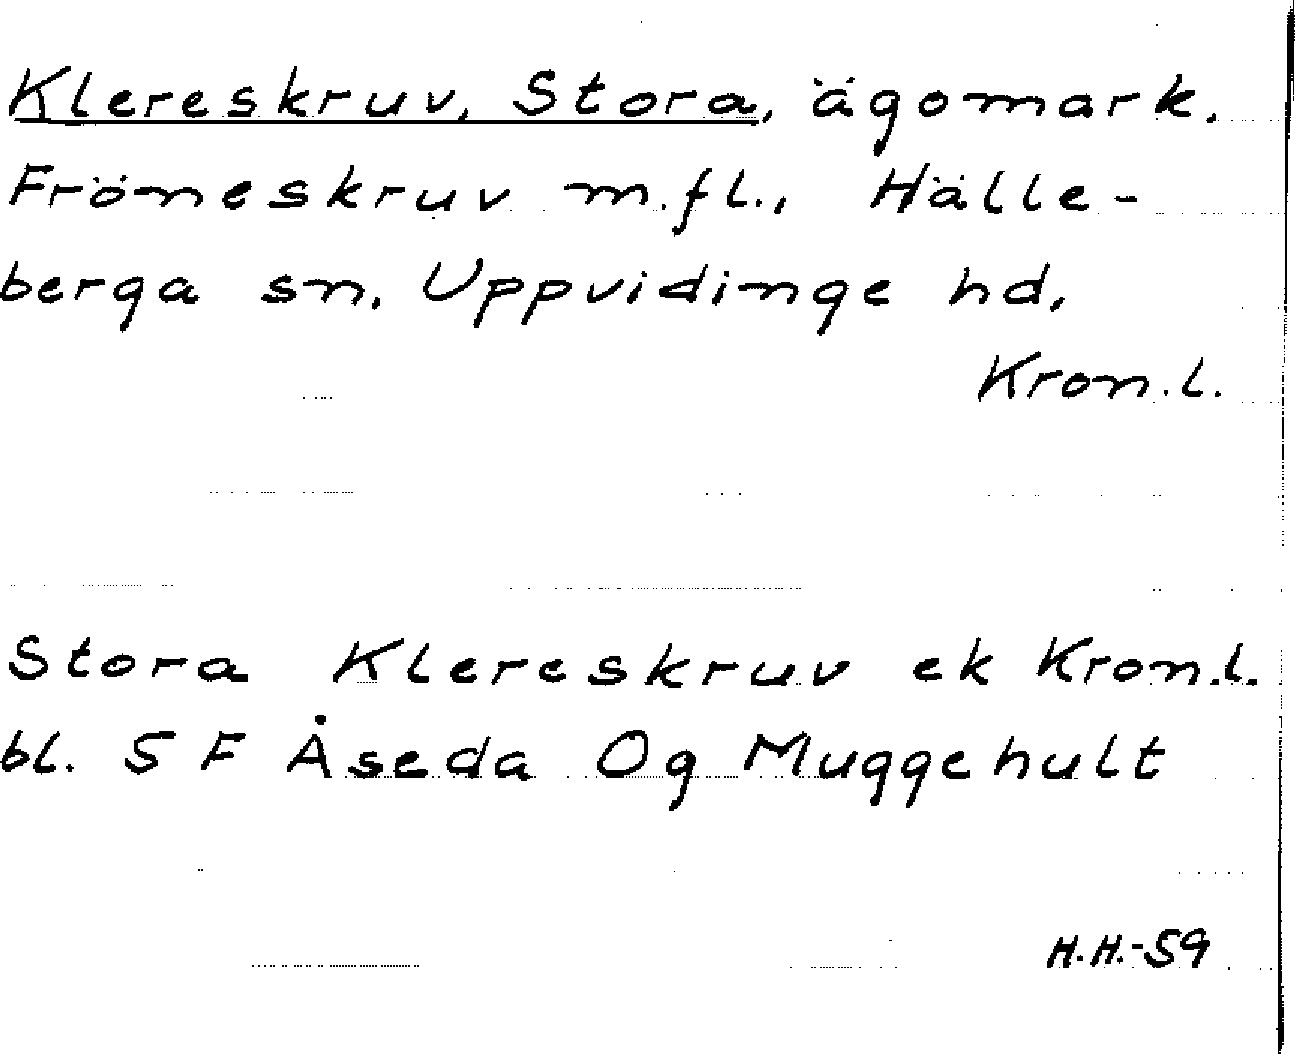 Klereskruv, Stora, ägomark.
Fröneskruv m.fl., Hälle-
berga sn, Uppvidinge hd,
Kron.l.
Stora Klereskruv ek Kron.l.
bl. 5 F Åseda Og Muggehult
H.H.-59